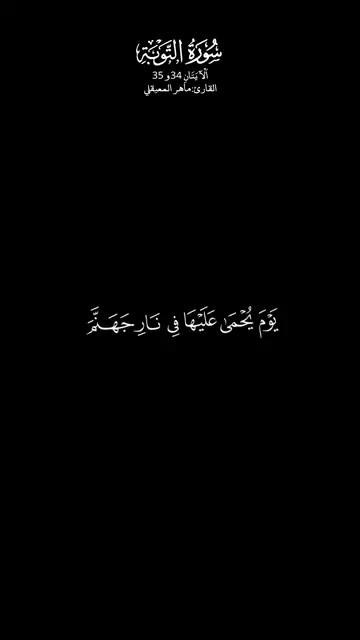 سُورَةُ التَّوْبَةِ
الآيَتَانِ 34 و 35
القارئ: ماهر المعيقلي
يَوْمَ يُحْمَىٰ عَلَيْهَا فِي نَارِ جَهَنَّمَ